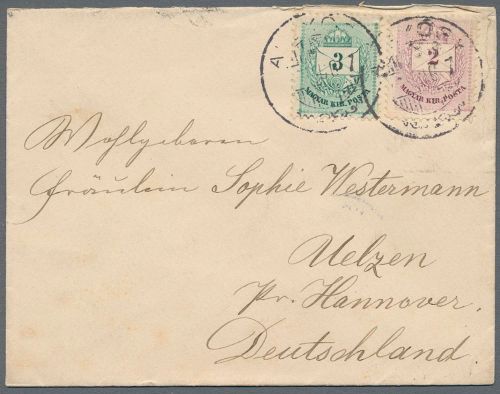 3
MAGYAR KIR. POSTA
2
MAGYAR KIR. POSTA
Wohlgeboren
Fräulein Sophie Westermann
Uelzen
Pr. Hannover.
Deutschland.